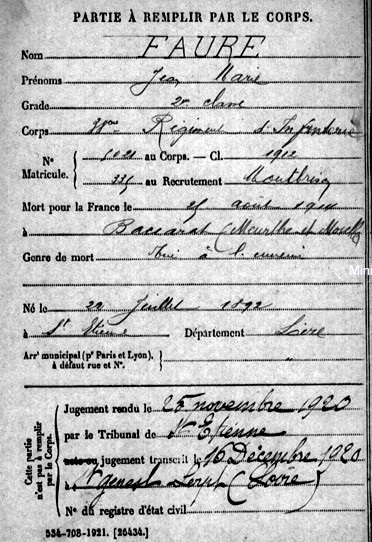 PARTIE À REMPLIR PAR LE CORPS.
Nom FAURE
Prénoms Jean Marie
Grade 2e classe
Corps 38eme Régiment d'Infanterie
N° Matricule. { 5021 au Corps. — Cl. 1912
335 au Recrutement Montbrison
Mort pour la France le 25 août 1914
à Baccarat (Meurthe et Moselle)
Genre de mort Tué à l'ennemi
Né le 22 Juillet 1892
à St Etienne Département Loire
Arrt municipal (pr Paris et Lyon), à défaut rue et N°. { "
Cette partie n'est pas à remplir par le Corps. {
Jugement rendu le 25 novembre 1920
par le Tribunal de St Etienne
acte ou jugement transcrit le 16 Décembre 1920
à St genest Lerpt (Loire)
N° du registre d'état civil
534-708-1921. [26434.]
Mini